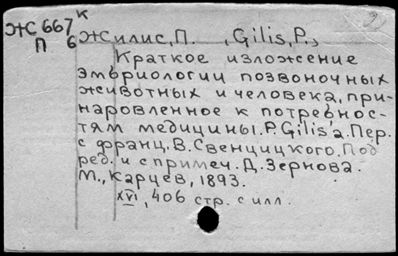 ЖС 667 к
П 6
Жилис, П. , Gilis, P.,
Краткое изложение
эмбриологии позвоночных
животных и человека, при-
наровленное к потребнос-
тям медицины. P. Gilis'а. Пер.
с франц. В. Свенцицкого. Под
ред. и с примеч. Д. Зернова.
М., Карцев, 1893.
XVI, 406 стр. с илл.